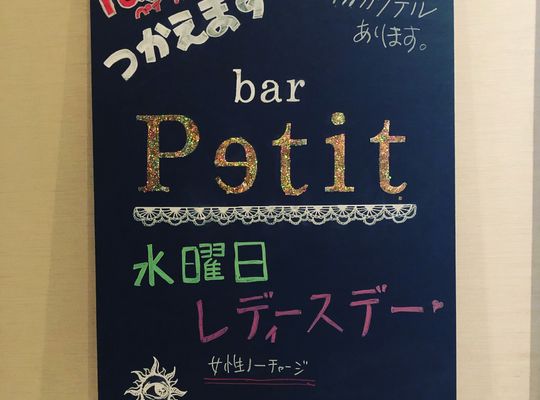 つかえます
カクテル
あります。
bar
Petit
水曜日
レディースデー
女性ノーチャージ